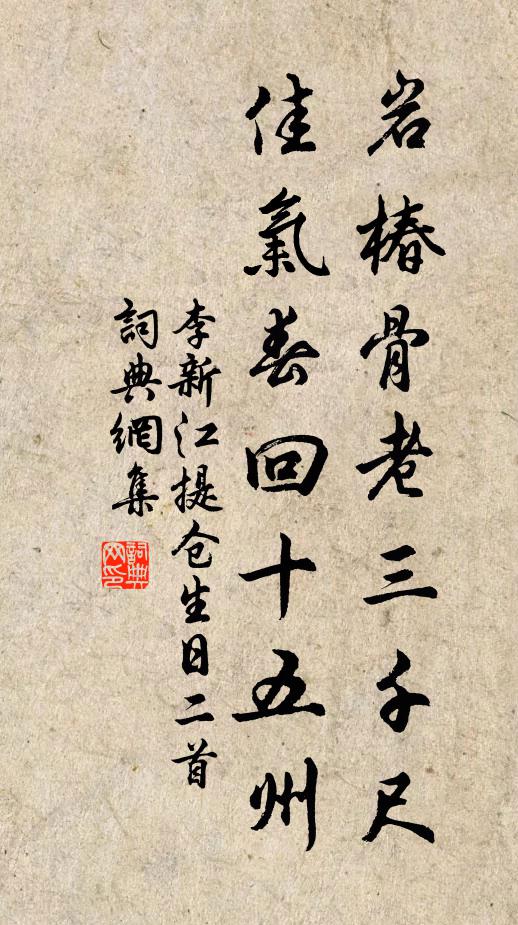 岩椿骨老三千尺
佳氣春回十五州
李新江提仓生日二首
詞典網集
詞典網印